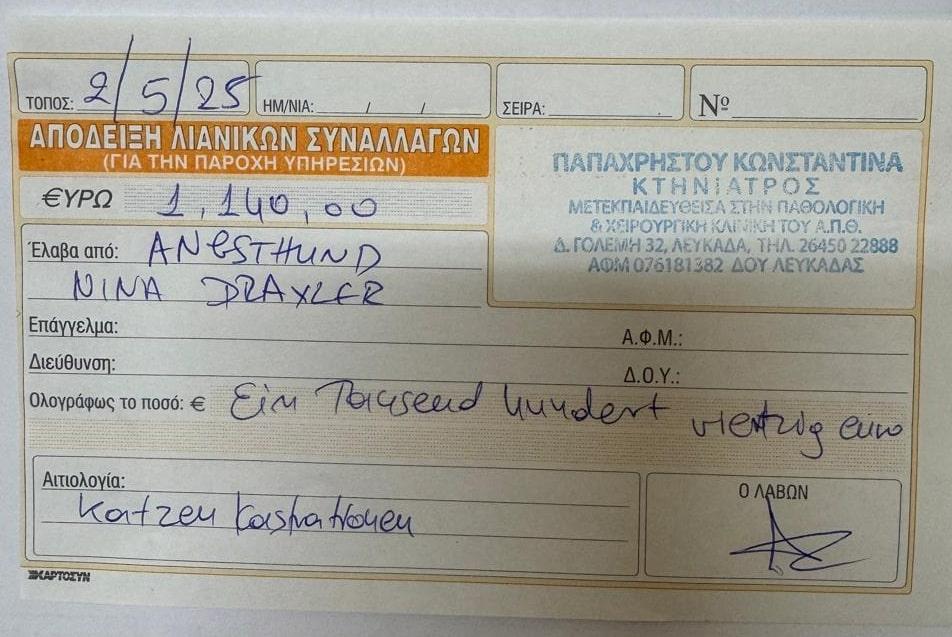 ΤΟΠΟΣ: 2/5/25 ΗΜ/ΝΙΑ: / / ΣΕΙΡΑ: Νº
ΑΠΟΔΕΙΞΗ ΛΙΑΝΙΚΩΝ ΣΥΝΑΛΛΑΓΩΝ
(ΓΙΑ ΤΗΝ ΠΑΡΟΧΗ ΥΠΗΡΕΣΙΩΝ)
€ΥΡΩ 1,140,00
ΠΑΠΑΧΡΗΣΤΟΥ ΚΩΝΣΤΑΝΤΙΝΑ
ΚΤΗΝΙΑΤΡΟΣ
ΜΕΤΕΚΠΑΙΔΕΥΘΕΙΣΑ ΣΤΗΝ ΠΑΘΟΛΟΓΙΚΗ
& ΧΕΙΡΟΥΡΓΙΚΗ ΚΛΙΝΙΚΗ ΤΟΥ Α.Π.Θ.
Δ. ΓΟΛΕΜΗ 32, ΛΕΥΚΑΔΑ, ΤΗΛ. 26450 22888
ΑΦΜ 076181382 ΔΟΥ ΛΕΥΚΑΔΑΣ
Έλαβα από: ANGSTHUND
NINA DRAXLER
Επάγγελμα: Α.Φ.Μ.:
Διεύθυνση: Δ.Ο.Υ.:
Ολογράφως το ποσό: € Ein Tausend hundert viertzig euro
Αιτιολογία:
Katzen kastrationen
Ο ΛΑΒΩΝ
ΧΑΡΤΟΣΥΝ